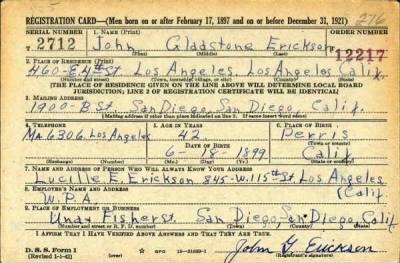 REGISTRATION CARD—(Men born on or after February 17, 1897 and on or before December 31, 1921) 276
SERIAL NUMBER 1. NAME (Print) ORDER NUMBER
2712 John Gladstone Erickson 12217
(First) (Middle) (Last)
2. PLACE OF RESIDENCE (Print)
460-E4th St. Los Angeles, Los Angeles Calif.
(Number and street) (Town, township, village, or city) (County) (State)
[THE PLACE OF RESIDENCE GIVEN ON THE LINE ABOVE WILL DETERMINE LOCAL BOARD
JURISDICTION; LINE 2 OF REGISTRATION CERTIFICATE WILL BE IDENTICAL]
3. MAILING ADDRESS
1900-B St. San Diego, San Diego, Calif.
(Mailing address if other than place indicated on line 2. If same insert word same)
4. TELEPHONE 5. AGE IN YEARS 6. PLACE OF BIRTH
Ma 6306. Los Angeles 42 Perris
DATE OF BIRTH
6-18-1899 Calif
7. NAME AND ADDRESS OF PERSON WHO WILL ALWAYS KNOW YOUR ADDRESS
Lucille E. Erickson 845-W.115th St, Los Angeles
8. EMPLOYER'S NAME AND ADDRESS (Calif.
W.P.A.
9. PLACE OF EMPLOYMENT OR BUSINESS
Fisher St. San Diego, San Diego, Calif
(Number and street or R. F. D. number) (Town) (County) (State)
I AFFIRM THAT I HAVE VERIFIED ABOVE ANSWERS AND THAT THEY ARE TRUE.
D. S. S. Form 1
(Revised 1-1-42) GPO 16-21630-1 John G. Erickson